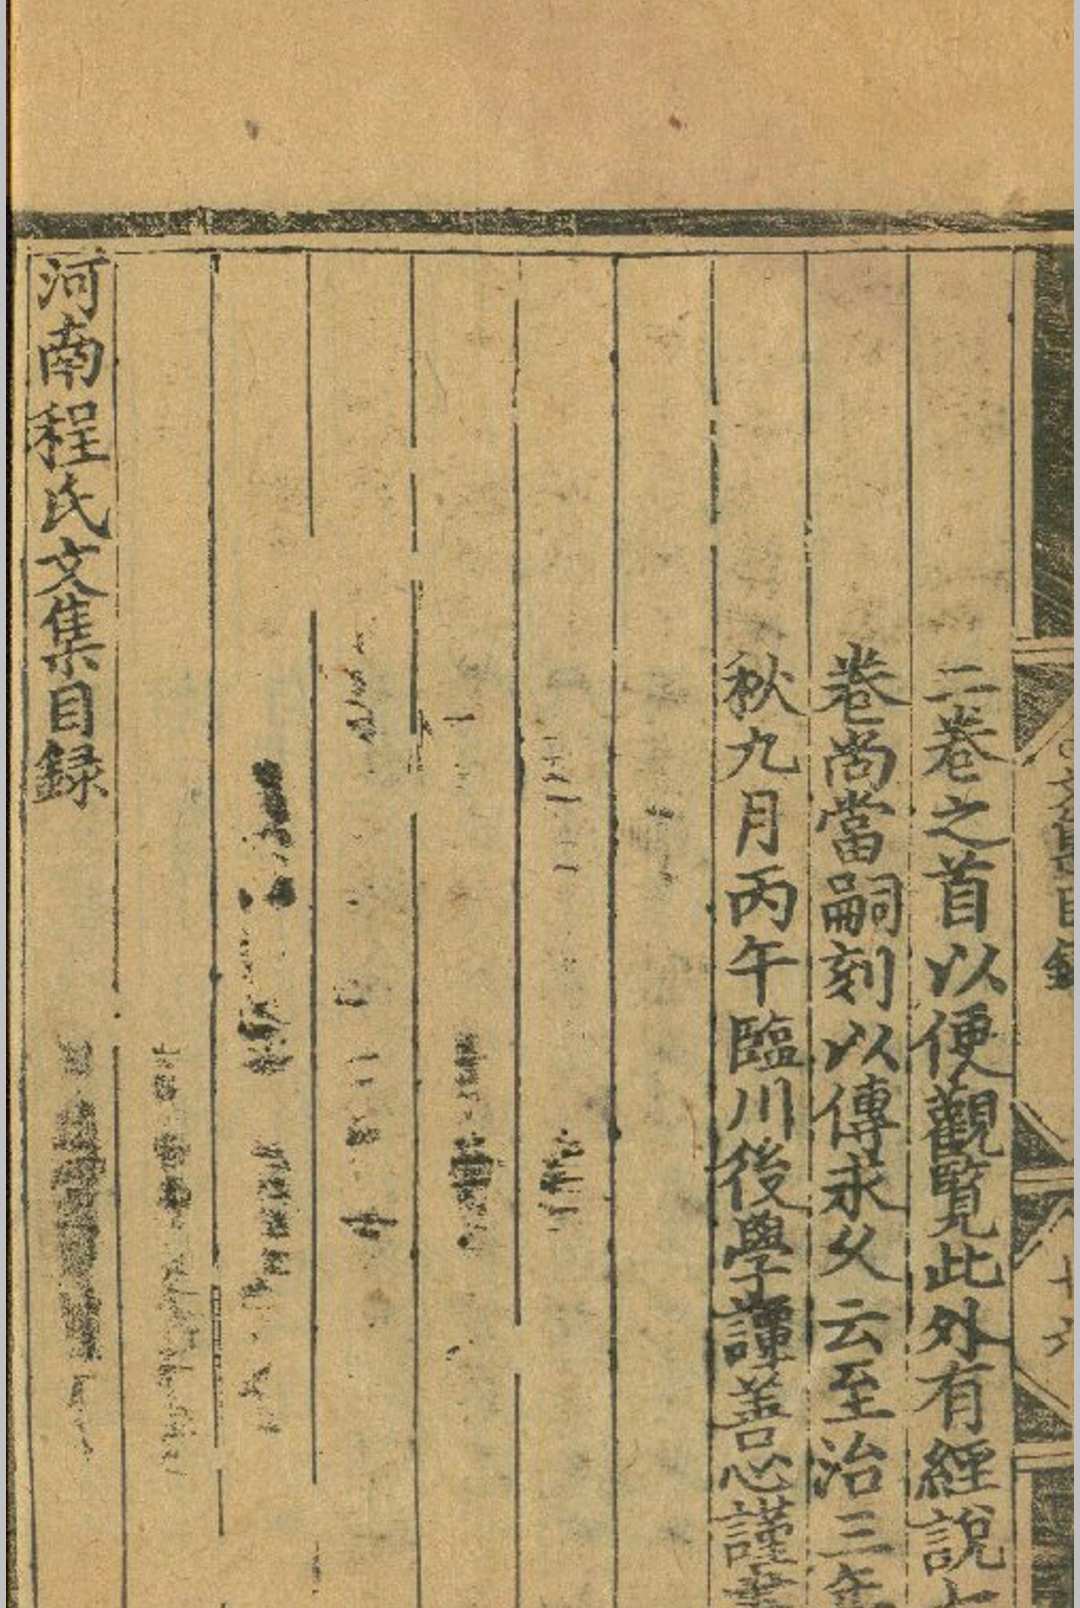 二卷之首以便觀覽此外有經說
卷尚當嗣刻以傳永久云至治三年
秋九月丙午臨川後學譚善心謹書
河南程氏文集目録